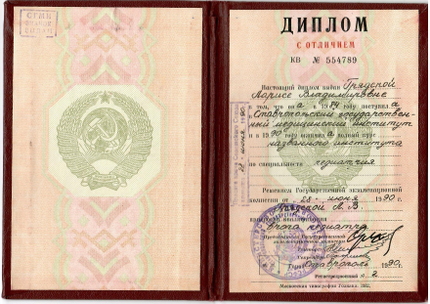 ДИПЛОМ
С ОТЛИЧИЕМ
КВ № 554789
Настоящий диплом выдан Грядской
Ларисе Владимировне
в том, что она в 1984 году поступила
в Ставропольский государствен-
ный медицинский институт
и в 1990 году окончила полный курс
названного института
по специальности педиатрия
Решением Государственной экзаменационной
комиссии от 28 июня 1990 г.
Л. В.
присвоена квалификация
врача педиатра
Председатель Государственной
экзаменационной комиссии
Ректор
Секретарь
Город Ставрополь 1990 г.
Регистрационный № 2
Московская типография Гознака.